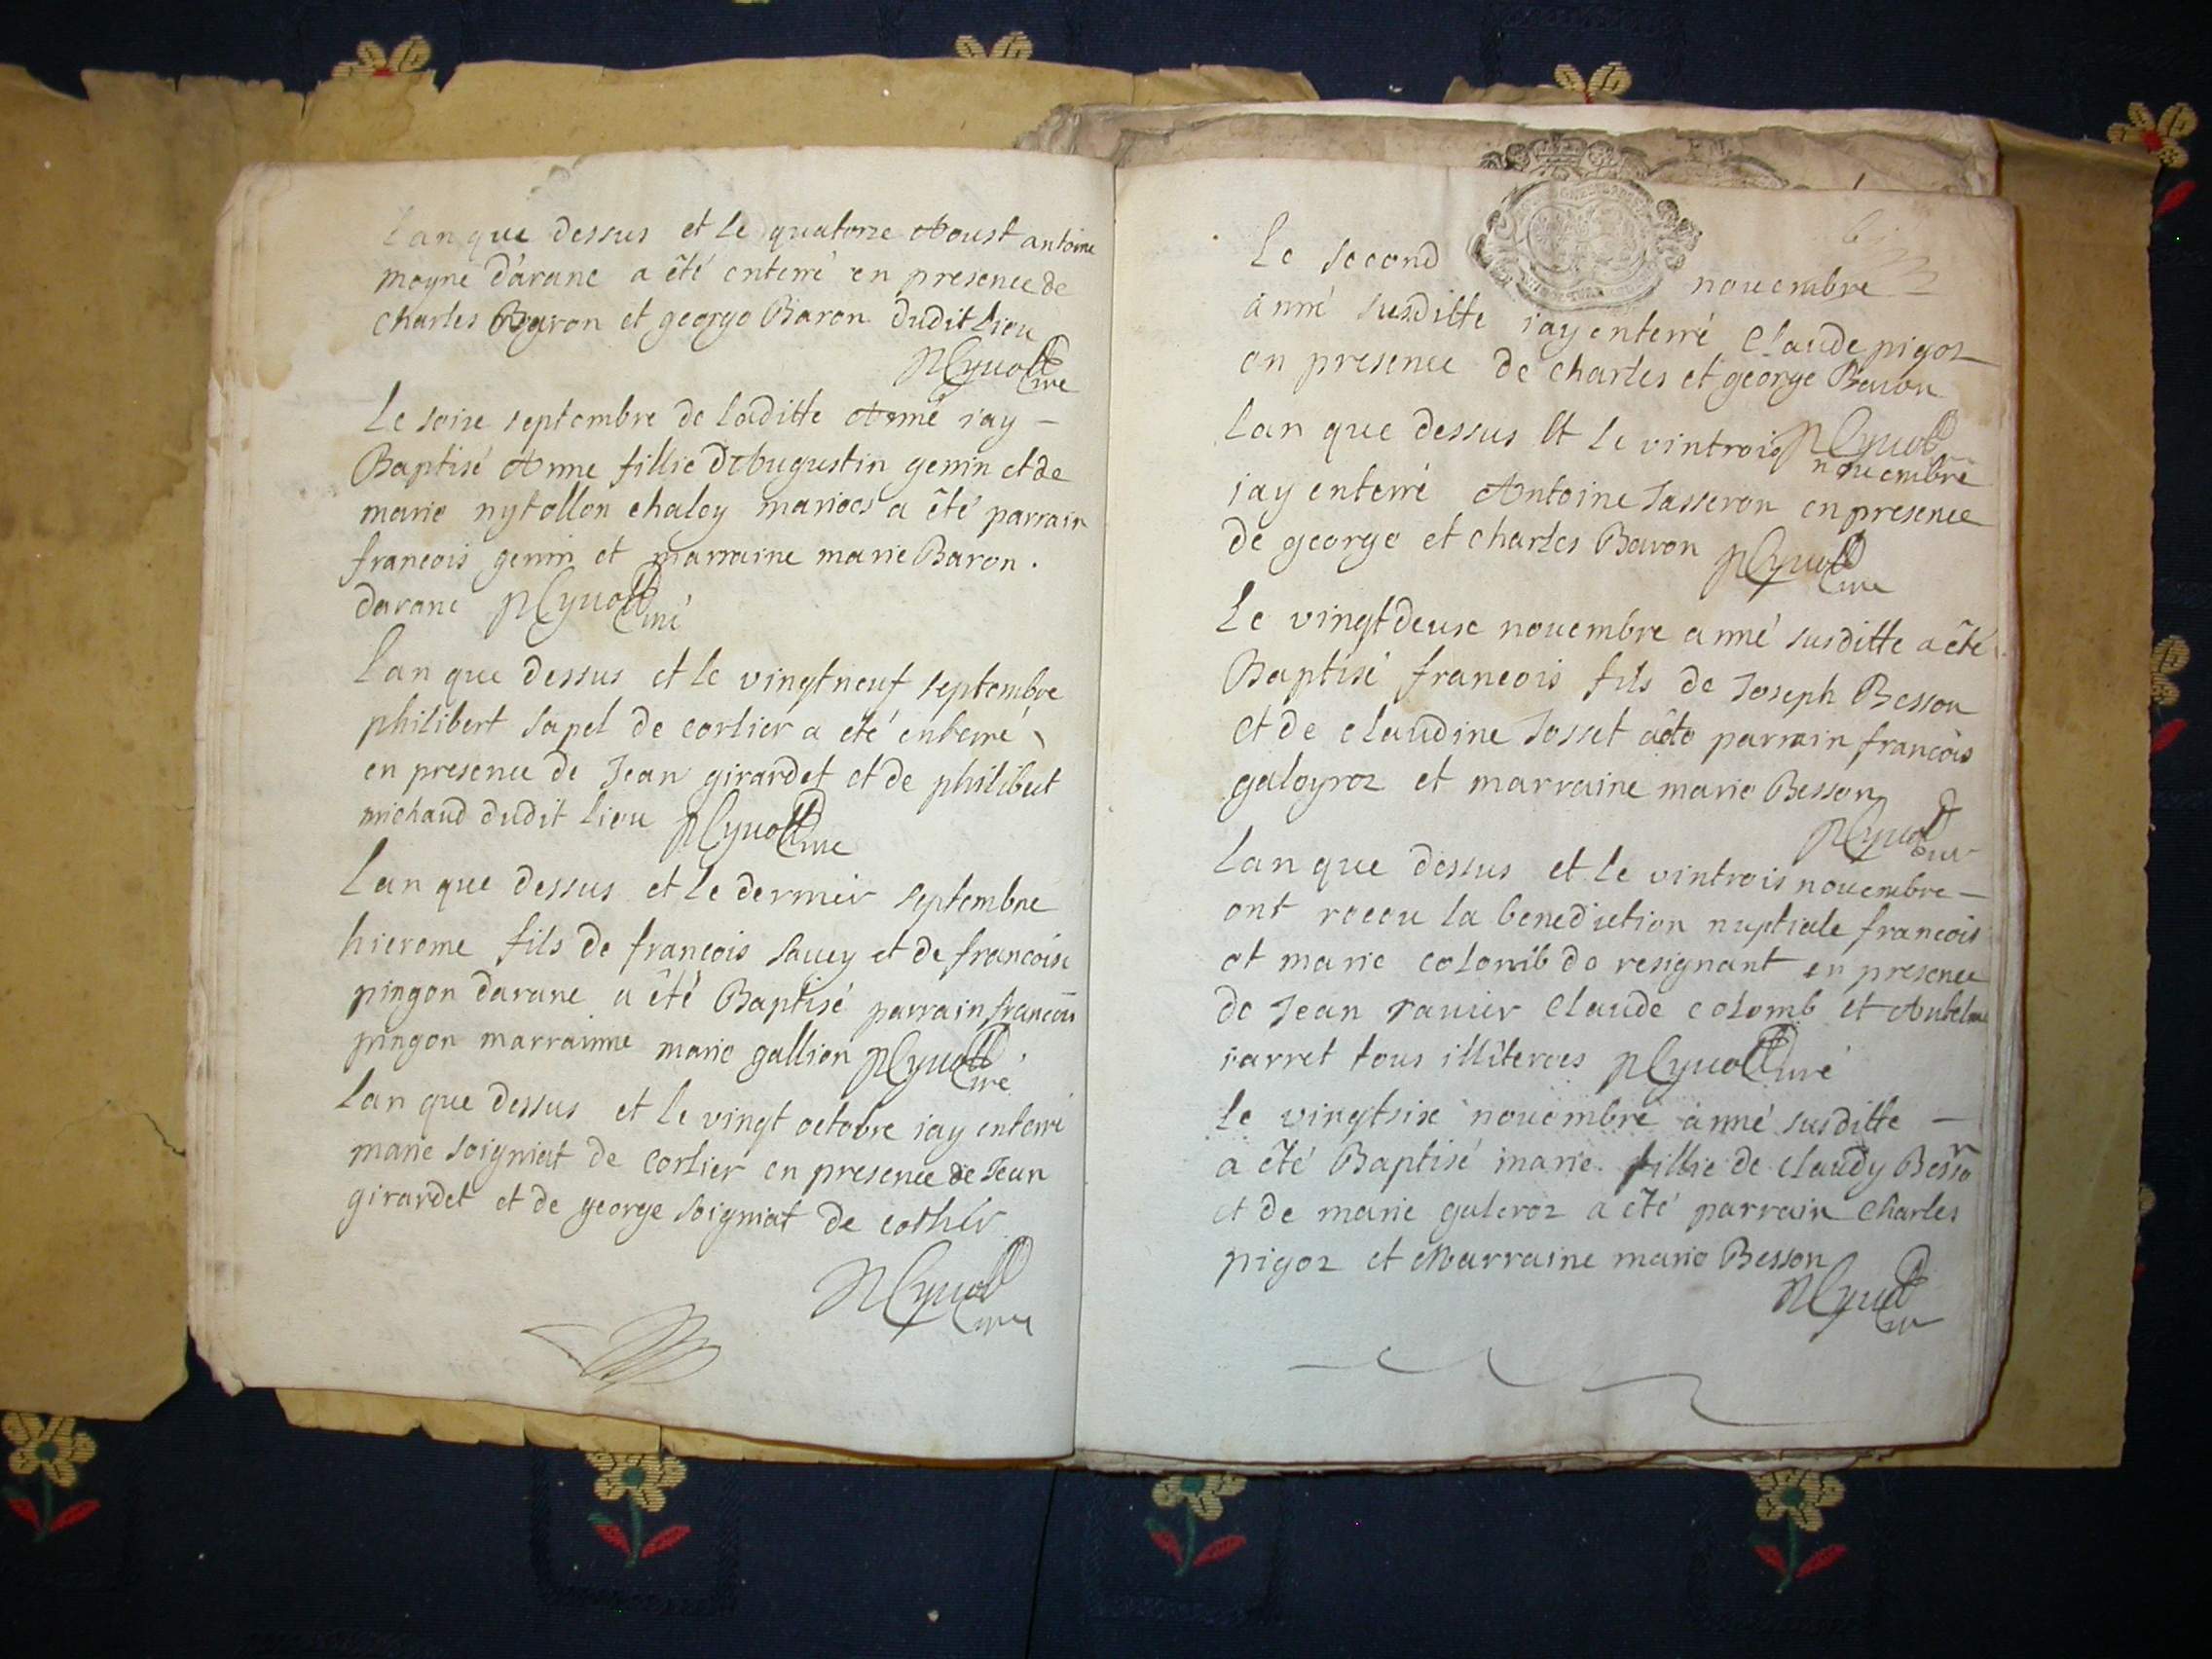 Lan que dessus et le quatorze Aoust antoine
moyne d'aranc a êté enterré en presence de
charles Baron et george Baron dudit lieu
Curé
Le soize septembre de laditte Anné j'ay –
Baptisé Anne fillie d'Augustin genin et de
marie nytollon chaley marieés a êté parrain
francois genin et marraine marie Baron.
daranc Curé
Lan que dessus et le vingtneuf septembre
philibert sapel de corlier a eté enterré
en presence de Jean girardet et de philibert
michaud dudit lieu Curé
Lan que dessus et le dernier septembre
hierome fils de francois savey et de francoise
pingon daranc a êté Baptisé parrain francois
pingon marrainne marie gallion Curé
Lan que dessus et le vingt octobre jay enterré
marie soigniat de corlier en presence de Jean
girardet et de george soigniat de corlier
Curé
Le second novembre
anné susditte jay enterré Claude pigoz
en presence de charles et george Baron
lan que dessus Et le vintrois
novembre
jay enterré Antoine Jasseron en presence
de george et charles Baron Curé
Le vingtdeux novembre anné susditte a êté
Baptisé francois fils de Joseph Besson
et de claudine Josset parrain francois
galeyroz et marraine marie Besson
Lan que dessus et le vintrois novembre –
ont receu la benediction nuptiale francois
et marie colomb de resignant en presence
de Jean ravier Claude colomb et Antelme
jarret tous illiterees Curé
Le vingtsix novembre anné susditte –
a êté Baptisé marie fillie de claudy Besson
et de marie galeroz a êté parrain Charles
pigoz et Marraine marie Besson